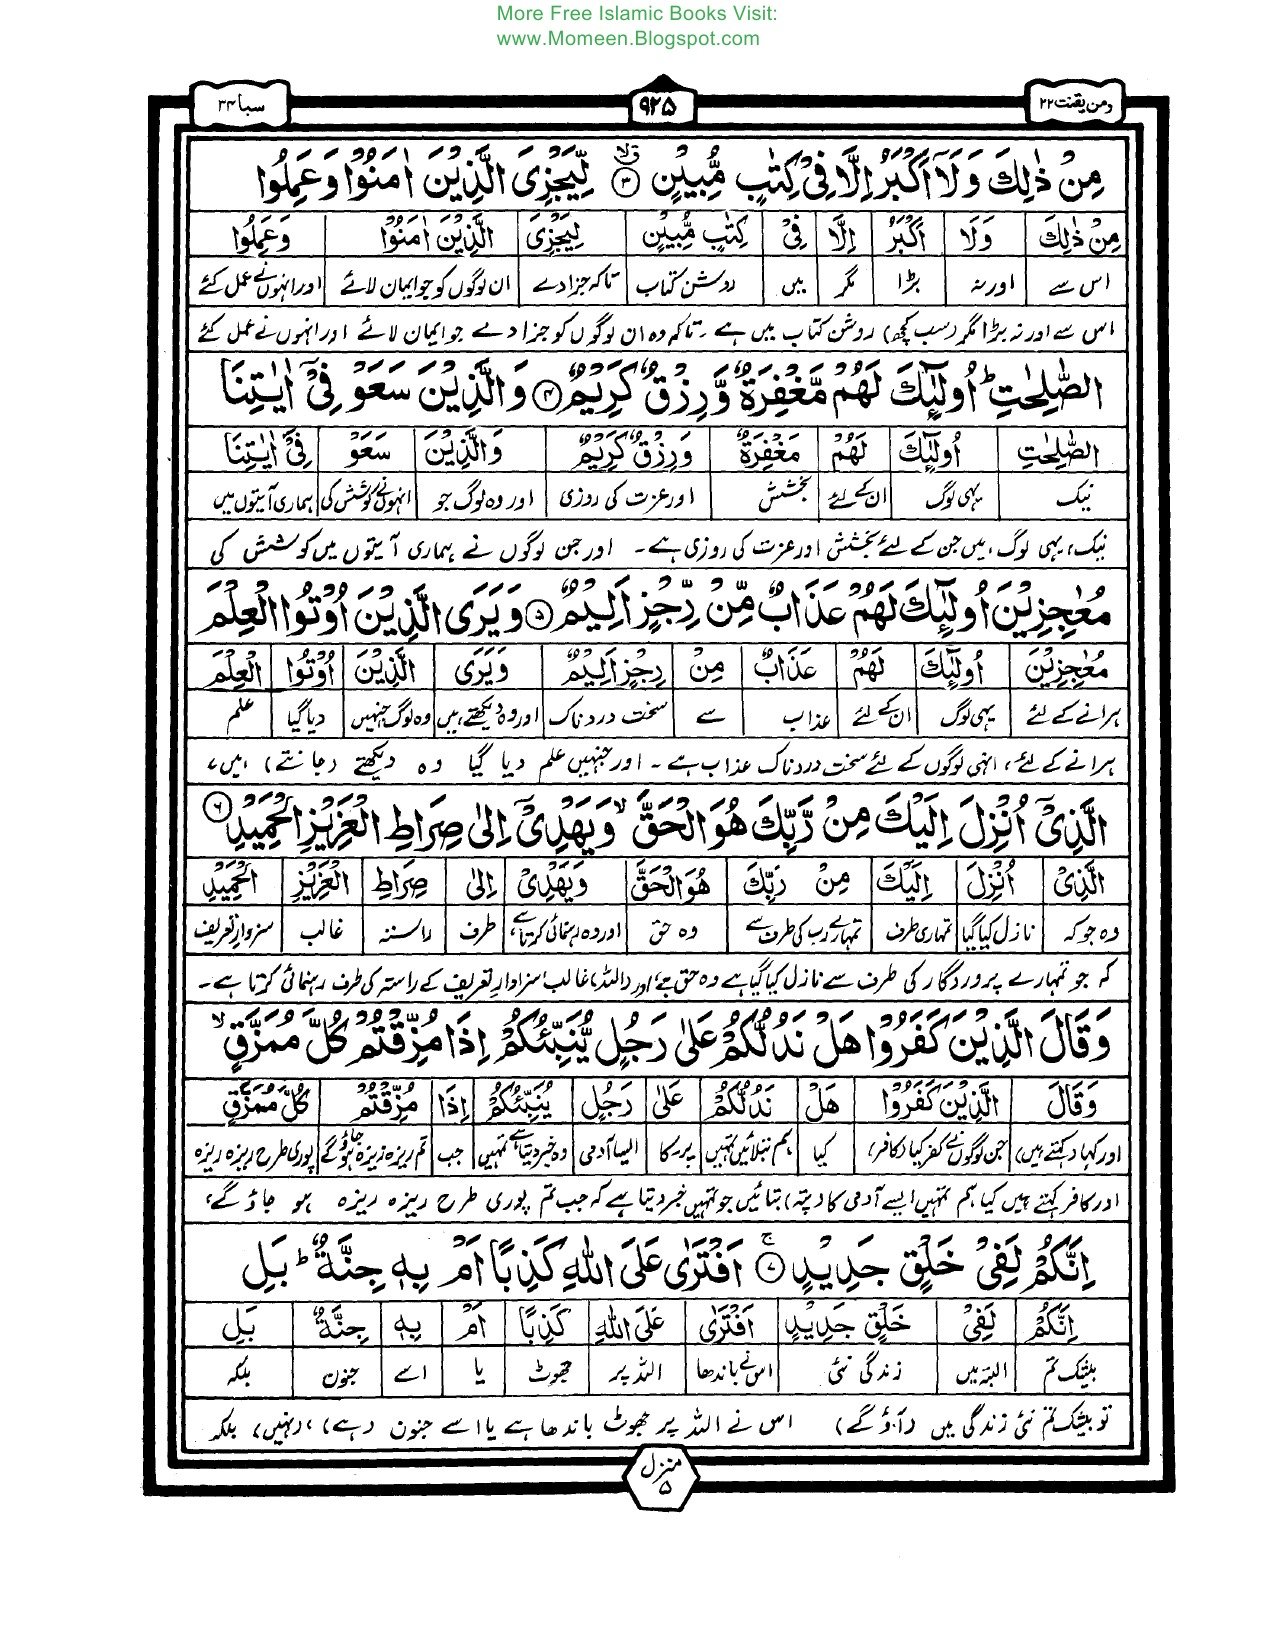 More Free Islamic Books Visit:
www.Momeen.Blogspot.com
ومن یقنت ۲۲ ۹۲۵ سبا ۳۴
مِنْ ذٰلِكَ وَلَاۤ اَكْبَرُ اِلَّا فِیْ كِتٰبٍ مُّبِیْنٍ ۙ﴿۳﴾ لِّیَجْزِیَ الَّذِیْنَ اٰمَنُوْا وَعَمِلُوا
مِنْ ذٰلِكَ وَلَا اَكْبَرُ اِلَّا فِیْ كِتٰبٍ مُّبِیْنٍ لِیَجْزِیَ الَّذِیْنَ اٰمَنُوْا وَعَمِلُوا
اس سے اور نہ بڑا مگر میں روشن کتاب تاکہ جزا دے ان لوگوں کو جو ایمان لائے اور انہوں نے عمل کئے
اس سے اور نہ بڑا مگر (سب کچھ) روشن کتاب میں ہے ۔ تاکہ وہ ان لوگوں کو جزا دے جو ایمان لائے اور انہوں نے عمل کئے
الصّٰلِحٰتِ ؕ اُولٰٓئِكَ لَهُمْ مَّغْفِرَةٌ وَّرِزْقٌ كَرِیْمٌ ﴿۴﴾ وَالَّذِیْنَ سَعَوْ فِیْۤ اٰیٰتِنَا
الصّٰلِحٰتِ اُولٰٓئِكَ لَهُمْ مَغْفِرَةٌ وَرِزْقٌ كَرِیْمٌ وَالَّذِیْنَ سَعَوْ فِیْۤ اٰیٰتِنَا
نیک یہی لوگ ان کے لئے بخشش اور عزت کی روزی اور وہ لوگ جو انہوں نے کوشش کی ہماری آیتوں میں
نیک، یہی لوگ ہیں جن کے لئے بخشش اور عزت کی روزی ہے۔ اور جن لوگوں نے ہماری آیتوں میں کوشش کی
مُعٰجِزِیْنَ اُولٰٓئِكَ لَهُمْ عَذَابٌ مِّنْ رِّجْزٍ اَلِیْمٌ ﴿۵﴾ وَیَرَی الَّذِیْنَ اُوْتُوا الْعِلْمَ
مُعٰجِزِیْنَ اُولٰٓئِكَ لَهُمْ عَذَابٌ مِنْ رِجْزٍ اَلِیْمٌ وَیَرَی الَّذِیْنَ اُوْتُوا الْعِلْمَ
ہرانے کے لئے یہی لوگ ان کے لئے عذاب سے سخت دردناک اور وہ دیکھتے ہیں وہ لوگ جنہیں دیا گیا علم
ہرانے کے لئے، انہی لوگوں کے لئے سخت دردناک عذاب ہے ۔ اور جنہیں علم دیا گیا وہ دیکھتے (جانتے) ہیں،
الَّذِیْۤ اُنْزِلَ اِلَیْكَ مِنْ رَّبِّكَ هُوَ الْحَقَّ ۙ وَیَهْدِیْۤ اِلٰی صِرَاطِ الْعَزِیْزِ الْحَمِیْدِ ﴿۶﴾
الَّذِیْ اُنْزِلَ اِلَیْكَ مِنْ رَبِّكَ هُوَ الْحَقَّ وَیَهْدِیْۤ اِلٰی صِرَاطِ الْعَزِیْزِ الْحَمِیْدِ
وہ جو کہ نازل کیا گیا تمہاری طرف تمہارے رب کی طرف سے وہ حق اور وہ رہنمائی کرتا ہے طرف راستہ غالب سزاوارِ تعریف
کہ جو تمہارے پروردگار کی طرف سے نازل کیا گیا ہے وہ حق ہے، اور (اللہ) غالب سزاوارِ تعریف کے راستہ کی طرف رہنمائی کرتا ہے۔
وَقَالَ الَّذِیْنَ كَفَرُوْا هَلْ نَدُلُّكُمْ عَلٰی رَجُلٍ یُّنَبِّئُكُمْ اِذَا مُزِّقْتُمْ كُلَّ مُمَزَّقٍ ۙ
وَقَالَ الَّذِیْنَ كَفَرُوْا هَلْ نَدُلُّكُمْ عَلٰی رَجُلٍ یُنَبِّئُكُمْ اِذَا مُزِّقْتُمْ كُلَّ مُمَزَّقٍ
اور کہا (کہتے ہیں) جن لوگوں نے کفر کیا (کافر) کیا ہم بتلائیں تمہیں پر۔ کا ایسا آدمی وہ خبر دیتا ہے تمہیں جب تم ریزہ ریزہ ہو جاؤگے پوری طرح ریزہ ریزہ
اور کافر کہتے ہیں کیا ہم تمہیں ایسے آدمی کا (پتہ) بتائیں جو تمہیں خبر دیتا ہے کہ جب تم پوری طرح ریزہ ریزہ ہو جاؤ گے،
اِنَّكُمْ لَفِیْ خَلْقٍ جَدِیْدٍ ۚ﴿۷﴾ اَفْتَرٰی عَلَی اللّٰهِ كَذِبًا اَمْ بِهٖ جِنَّةٌ ؕ بَلِ
اِنَّكُمْ لَفِیْ خَلْقٍ جَدِیْدٍ اَفْتَرٰی عَلَی اللّٰهِ كَذِبًا اَمْ بِهٖ جِنَّةٌ بَلِ
بیشک تم البتہ میں زندگی نئی اس نے باندھا اللہ پر جھوٹ یا اسے جنون بلکہ
تو بیشک تم نئی زندگی میں (آؤ گے) اس نے اللہ پر جھوٹ باندھا ہے یا اسے جنون (ہے)، (نہیں) بلکہ
منزل ۵